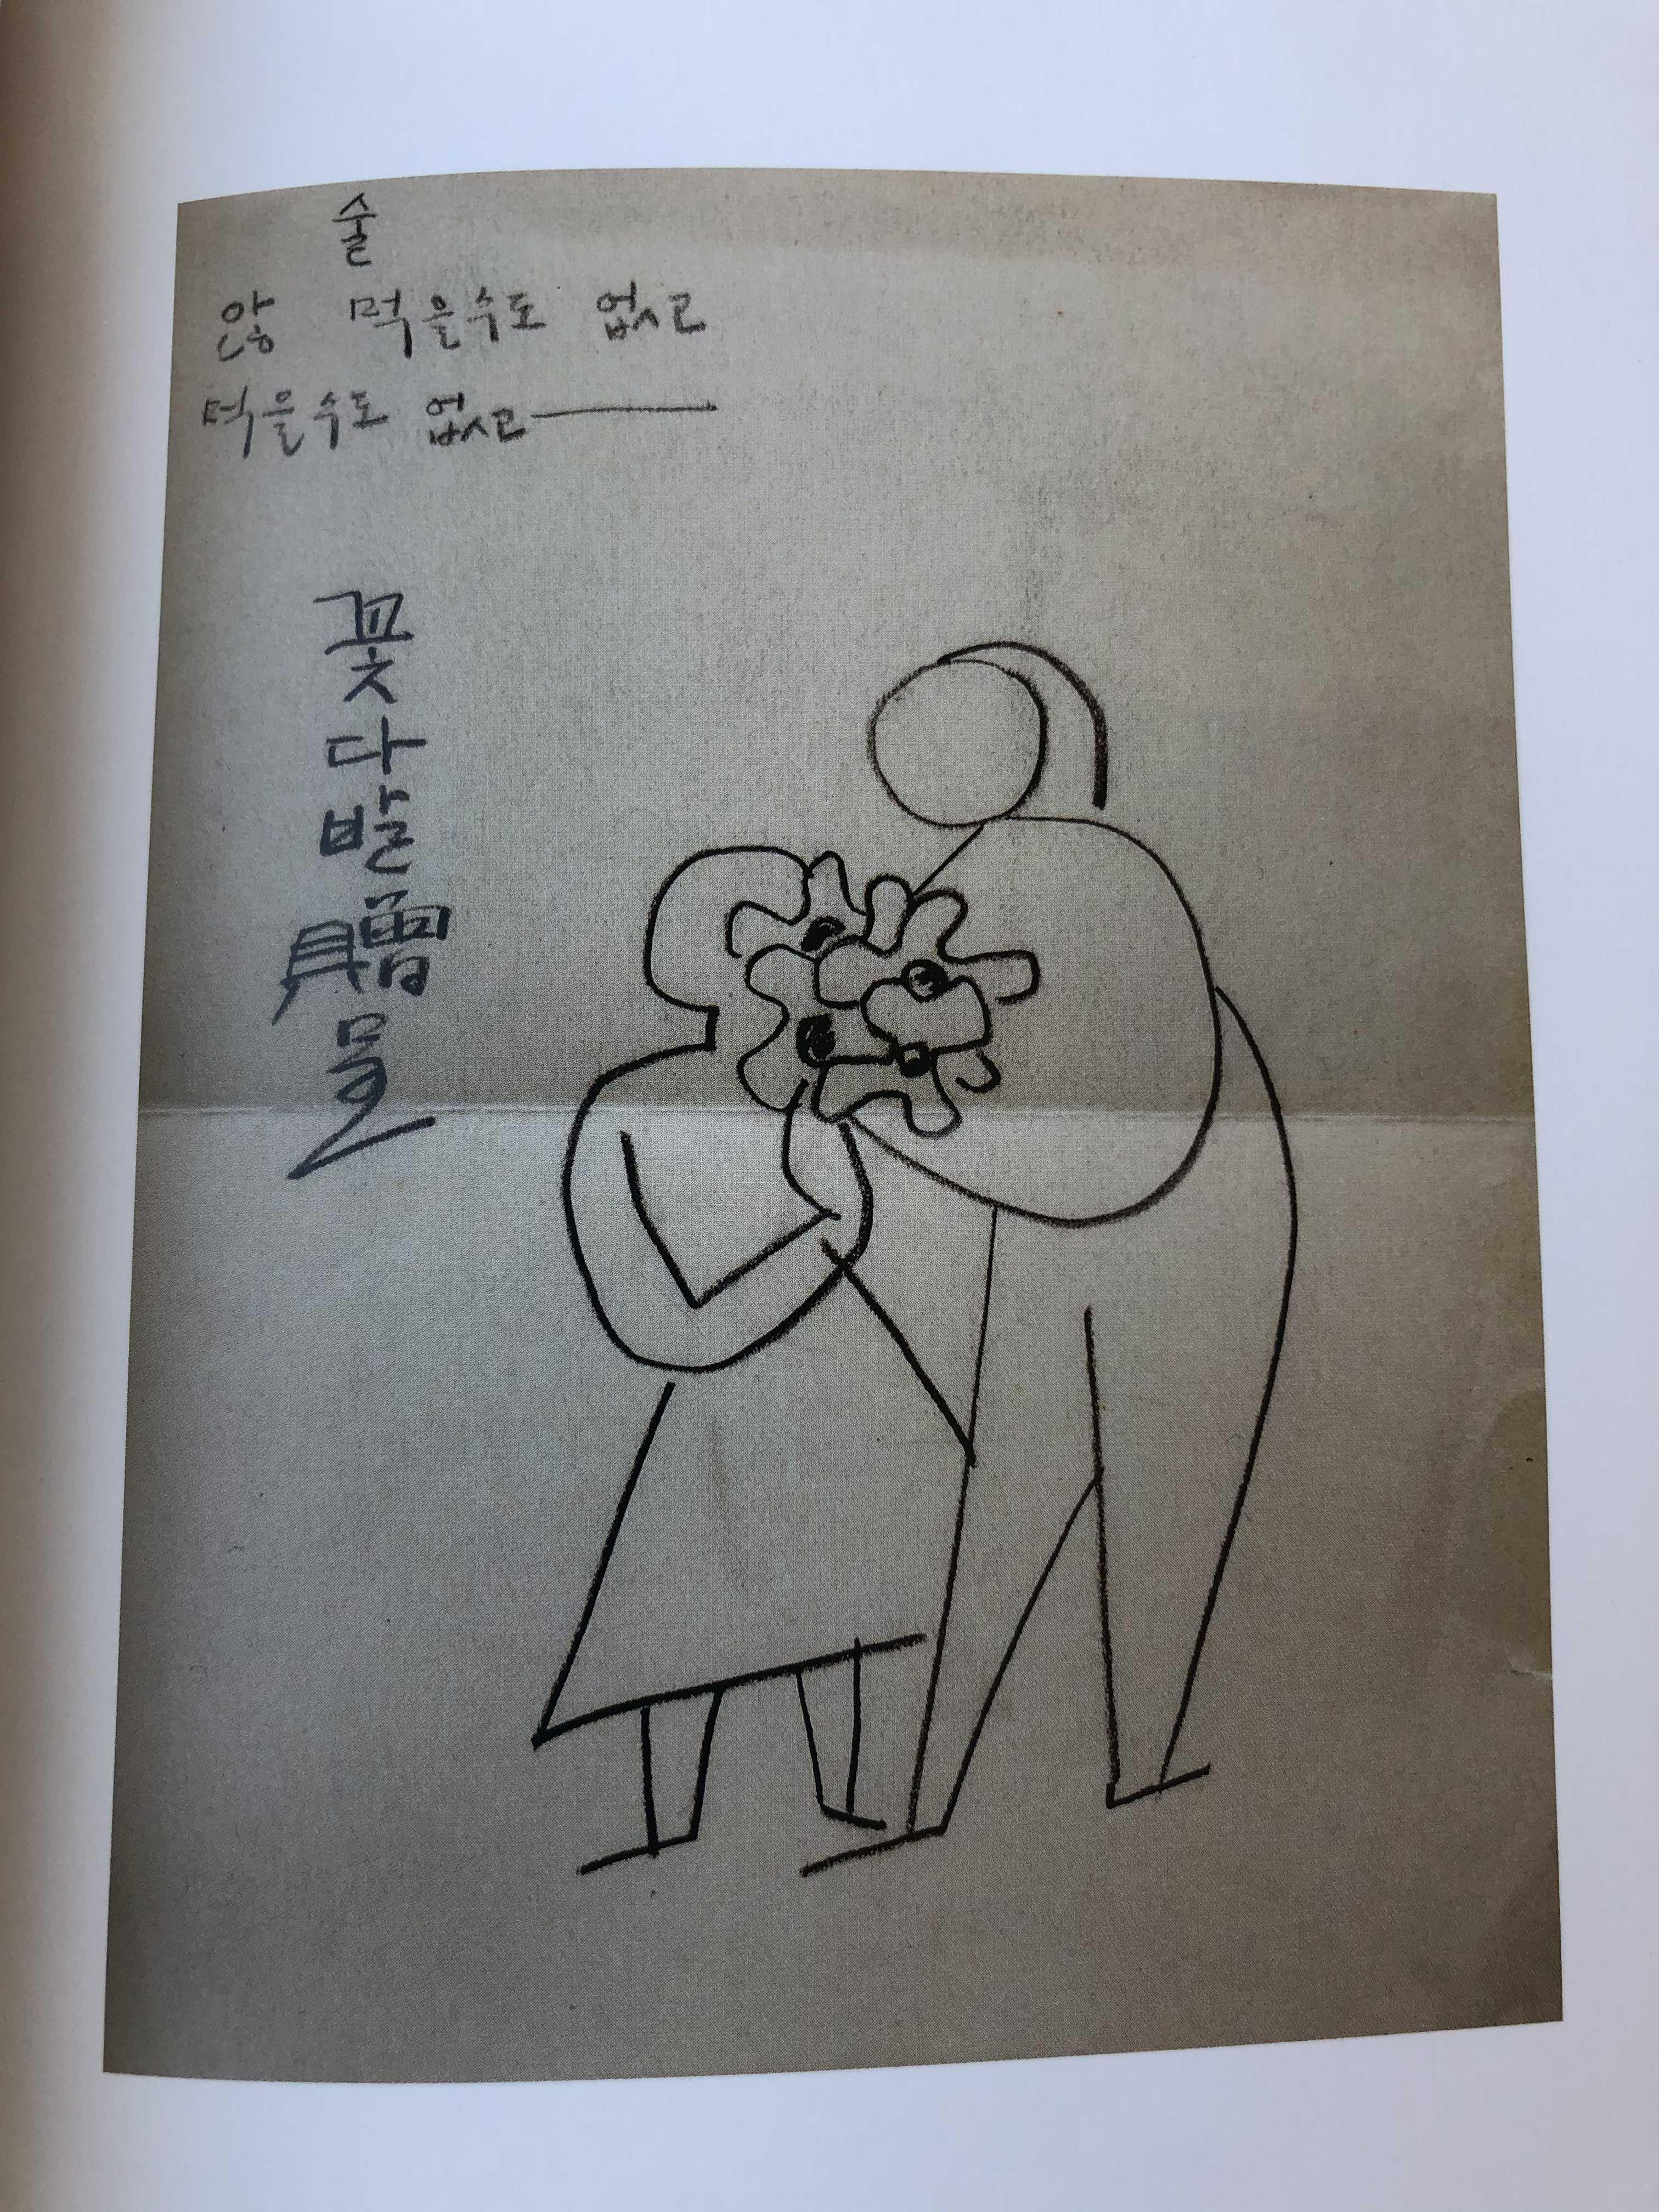 술
않 먹을수도 없고
먹을수도 없고——
꽃다발贈呈